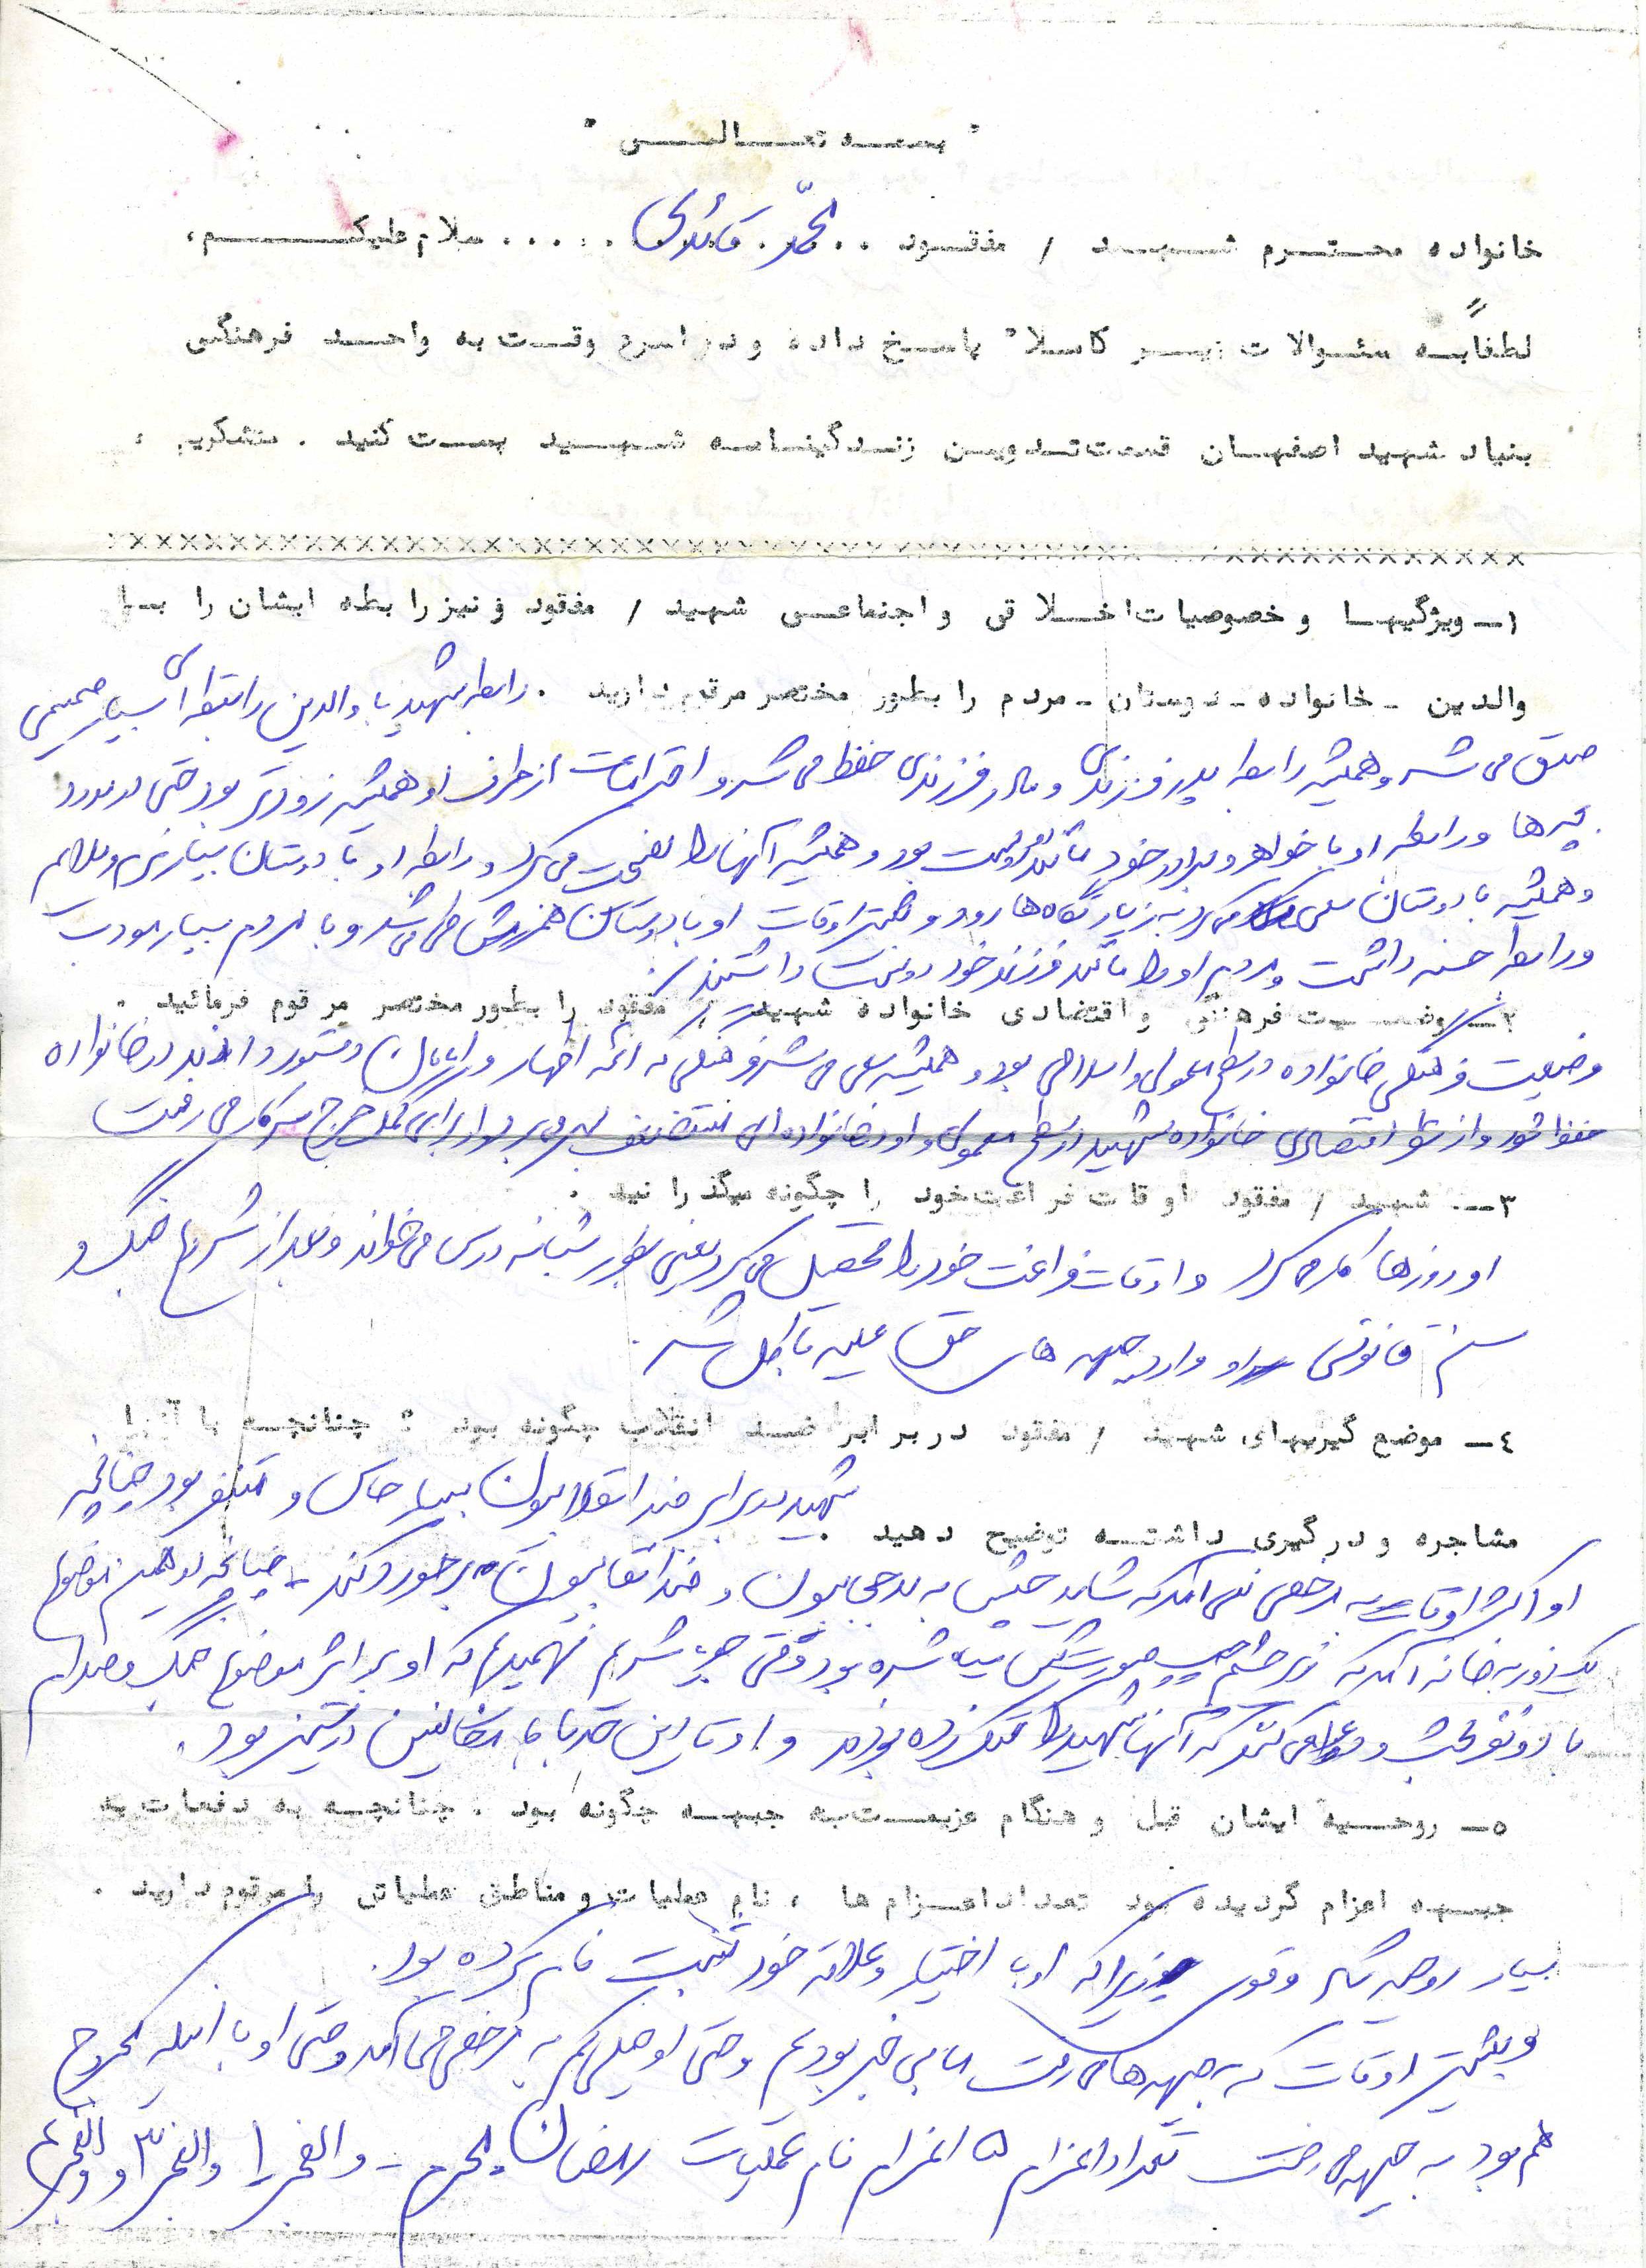 " بسمه تعالی "
خانواده محترم شهید / مفقود .. محمد قائدی ..... سلام علیکم،
لطفاً به سئوالات زیر کاملاً پاسخ داده و در اسرع وقت به واحد فرهنگی
بنیاد شهید اصفهان قسمت تدوین زندگینامه شهید پست کنید . متشکریم .
xxxxxxxxxxxxxxxxxxxxxxxxxxxxxxxxxxxxxxxxxxxxxxxxxxxxxxxx
۱- ویژگیها و خصوصیات اخلاقی و اجتماعی شهید / مفقود و نیز رابطه ایشان را با
والدین - خانواده - دوستان - مردم را بطور مختصر مرقوم دارید . رابطه شهید با والدین رابطه ای بسیار صمیمی
می شد و همیشه رابطه پدر فرزندی و مادر فرزندی حفظ می شد و احترامات از طرف او همیشه زودتر بود حتی در مورد
بچه ها و رابطه او با خواهر و برادر خود مانند دوست بود و همیشه آنها را نصیحت می کرد و رابطه او با دوستان بسیار نرم و ملایم
و همیشه با دوستان سعی می کرد به زیارتگاه ها رود و بیشتر اوقات او با دوستان همرزمش طی می شد و با مردم بسیار مودب
و رابطه حسنه داشت و مردم او را مانند فرزند خود دوست داشتند .
۲- وضعیت فرهنگی و اقتصادی خانواده شهید / مفقود را بطور مختصر مرقوم فرمائید .
وضعیت فرهنگی خانواده در سطح معمولی و اسلامی بود و همیشه سعی می شد فرهنگی که ائمه اطهار و امامان دستور دادند در خانواده
حفظ شود و از نظر اقتصادی خانواده شهید در سطح معمولی و او در خانواده ای مستضعف بسر می برد و او برای کمک خرج سر کار می رفت
۳- شهید / مفقود اوقات فراغت خود را چگونه میگذرانید .
او روزها کار می کرد و اوقات فراغت خود را تحصیل می کرد یعنی بطور شبانه درس می خواند و بعد از شروع جنگ و
سن قانونی او وارد جبهه های حق علیه باطل شد .
٤- موضع گیریهای شهید / مفقود در برابر ضد انقلاب چگونه بود ؟ چنانچه با آنها
شهید در برابر ضد انقلابیون بسیار حساس و متنفر بود چنانچه
مشاجره و درگیری داشته توضیح دهید .
او اکثر اوقات به مرخصی نمی آمد که شاید چشمش به بدحجابیون و ضد انقلابیون برخورد نکند - چنانچه در همین موضوع
یک روز به خانه آمد که زیر چشم صورتش سیاه شده بود وقتی جویا شدیم فهمیدیم که او بر اثر موضوع جنگ و صدام
با دو نفر بحث و دعوا می کند که آنها شهید را کتک زده بودند و او تا این حد با مخالفین در ستیز بود .
۵- روحیه ایشان قبل و هنگام عزیمت به جبهه چگونه بود . چنانچه به دفعات به
جبهه اعزام گردیده بود تعداد اعزام ها ، نام عملیات و مناطق عملیاتی را مرقوم دارید .
بسیار روحیه و قوی زیرا که او با اختیار و علاقه خود ثبت نام کرده بود .
و بیشتر اوقات که به جبهه ها می رفت ما بی خبر بودیم و حتی او خیلی کم به مرخصی می آمد و حتی او با اینکه مجروح
هم بود به جبهه می رفت تعداد اعزام ۵ اعزام نام عملیات رمضان محرم - والفجر ۱ والفجر ۳ و والفجر ۴